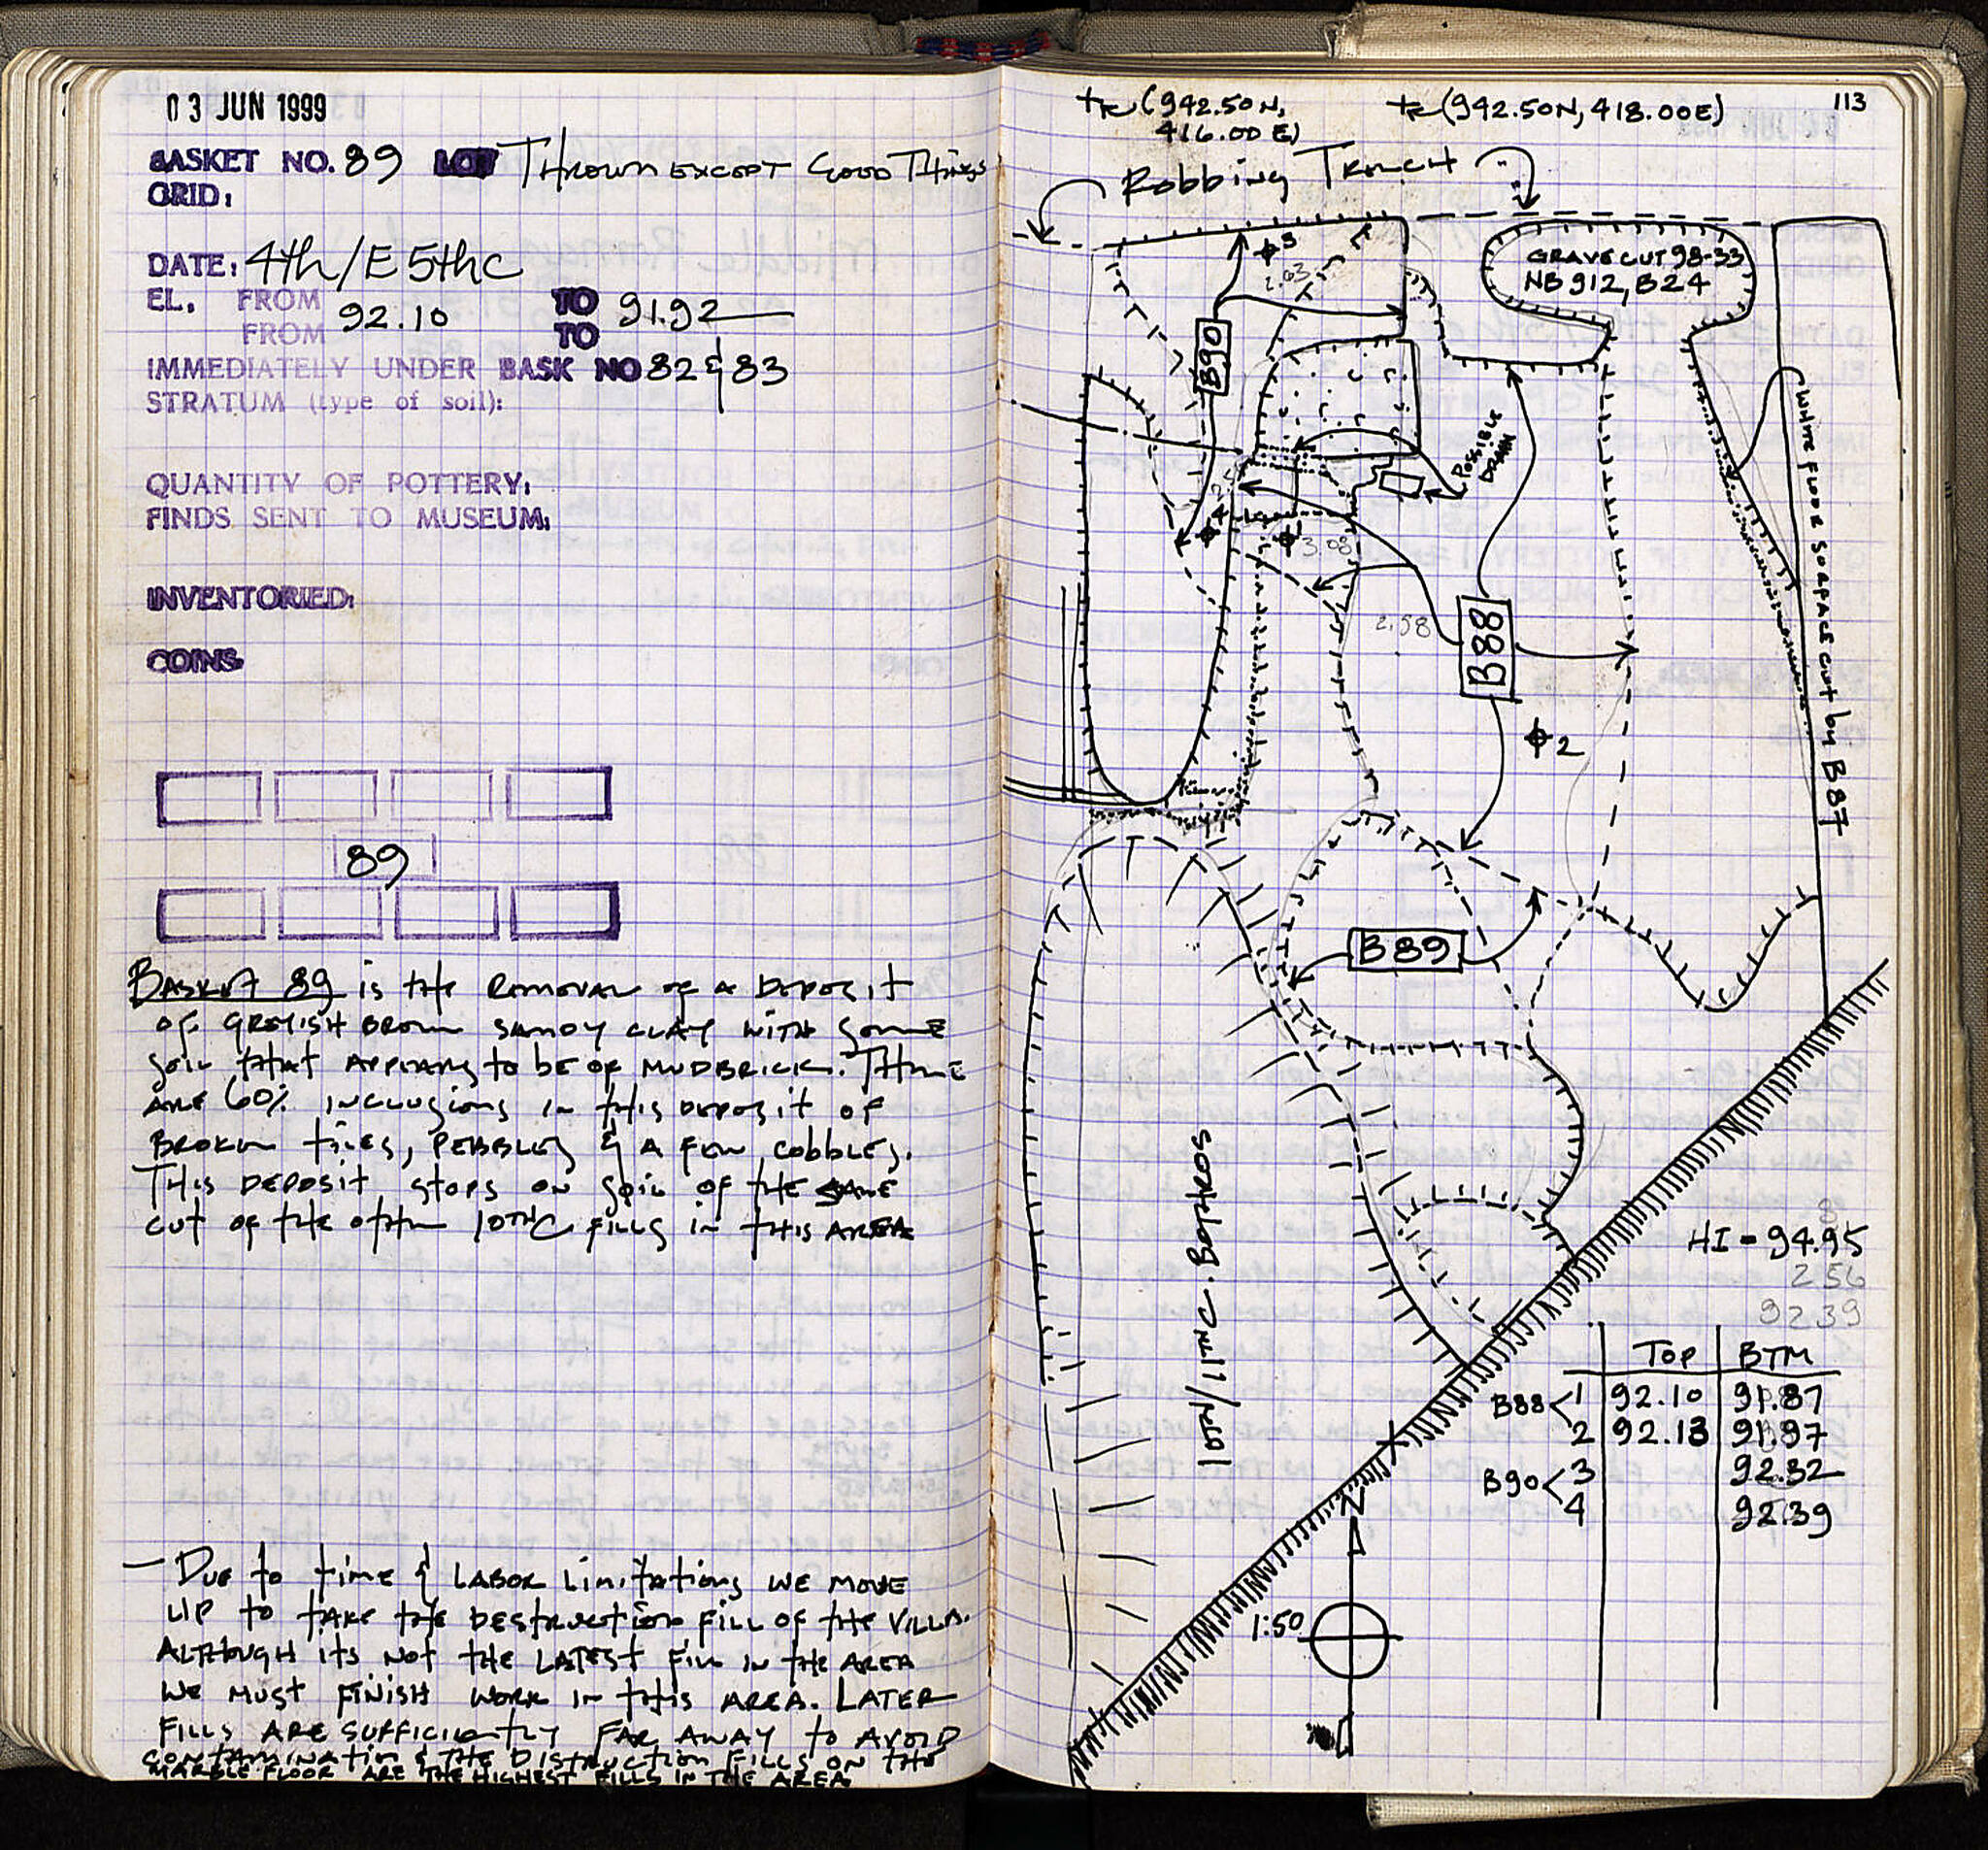 03 JUN 1999
BASKET NO. 89 LOT THROWN EXCEPT GOOD THINGS
GRID:
DATE: 4th/E 5thC
EL. FROM 92.10 TO 91.92
FROM TO
IMMEDIATELY UNDER BASK NO 82 & 83
STRATUM (type of soil):
QUANTITY OF POTTERY:
FINDS SENT TO MUSEUM:
INVENTORIED:
COINS
89
BASKET 89 is the REMOVAL of a DEPOSIT
of GREYISH BROWN SANDY CLAY WITH SOME
SOIL that APPEARS to be OF MUDBRICK. THERE
ARE 60% INCLUSIONS IN this DEPOSIT of
BROKEN tiles, PEBBLES & A FEW cobbles.
THIS DEPOSIT stops on SOIL OF THE SAME
CUT OF the other 10THC fills in this AREA
— DUE to time & LABOR Limitations WE MOVE
UP to TAKE the DESTRUCTION FILL OF the VILLA.
ALTHOUGH ITS NOT the LATEST FILL IN the AREA
WE MUST FINISH WORK IN this AREA. LATER
FILLS ARE SUFFICIENTLY FAR AWAY to AVOID
CONTAMINATION & THE DISTRUCTION FILLS ON THE
MARBLE FLOOR ARE THE HIGHEST FILLS IN THE AREA
113
(942.50N,
416.00 E)
(942.50N, 418.00E)
Robbing Trench
GRAVE CUT 98-33
NB 912, B24
3
2.63
B90
POSSIBLE
DRAIN
WHITE FLOOR SURFACE CUT by B87
4
1
3.08
2.98
B88
2
B89
10TH/11TH C. BOTHROS
HI = 94.95
2 56
92 39
TOP BTM
B88 < 1 92.10 91.87
2 92.13 91.97
B90 < 3 92.32
4 92.39
N
1:50